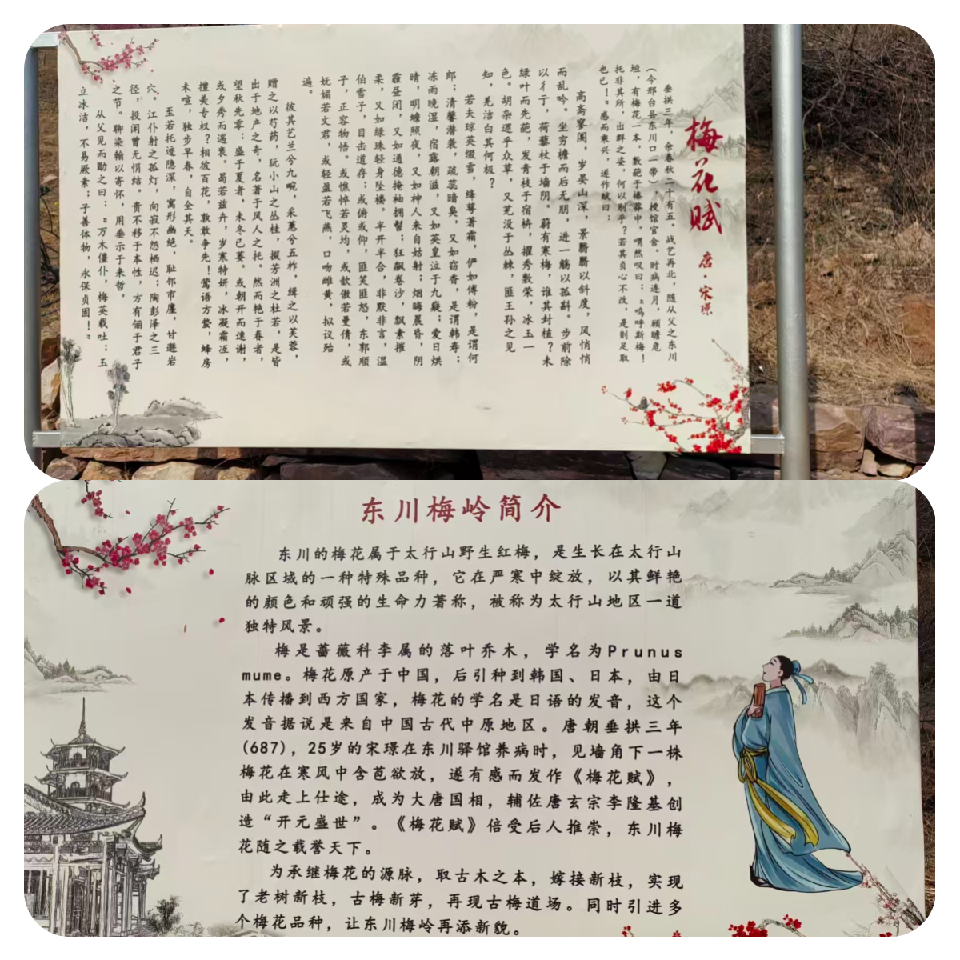 梅花赋 唐·宋璟
垂拱三年,余春秋二十有五。战艺再北,随从父之东川
(今邢台县东川口一带),授馆官舍。时病连月,顾瞻危
垣,有梅花一本,敷葩于榛莽中。喟然叹曰:“呜呼斯梅!
托非其所,出群之姿,何以别乎?若其贞心不改,是则足取
也已!”感而乘兴,遂作赋曰:
高斋寥阒,岁晏山深,景翳翳以斜度,风悄悄
而乱吟。坐穷檐而后无朋,进一觞以孤斟。步前除
以彳亍,荷藜杖于墙阴。蔚有寒梅,谁其封植?未
绿叶而先葩,发青枝于宿枿,擢秀敷荣,冰玉一
色。胡杂遝乎众草,又芜没于丛棘,匪王孙之见
知,羌洁白其何极?
若夫琼英缀雪,绛萼著霜,俨如傅粉,是谓何
郎;清馨潜袭,疏蕊暗臭,又如窃香,是谓韩寿;
冻雨晚湿,宿露朝滋,又如英皇泣于九嶷;爱日烘
晴,明蟾照夜,又如神人来自姑射;烟晦晨昏,阴
霾昼闭,又如通德掩袖拥髻;狂飙卷沙,飘素摧
柔,又如绿珠轻身坠楼。半开半合,非默非言,温
伯雪子,目击道存;或俯或仰,匪笑匪怒,东郭顺
子,正容物悟。或憔悴若灵均,或欹傲若曼倩,或
妩媚若文君,或轻盈若飞燕,口吻雌黄,拟议殆
遍。
彼其艺兰兮九畹,采蕙兮五柞,缉之以芙蓉,
赠之以芍药,玩小山之丛桂,掇芳洲之杜若,是皆
出于地产之奇,名著于风人之托。然而艳于春者,
望秋先零;盛于夏者,未冬已萎。或朝开而速谢,
或夕秀而遽衰。曷若兹卉,岁寒特妍,冰凝霜冱,
擅美专权?相彼百花,孰敢争先!莺语方蛰,蜂房
未喧,独步早春,自全其天。
至若托迹隐深,寓形幽绝,耻邻市廛,甘遯岩
穴。江仆射之孤灯,向寂不怨栖迟;陶彭泽之三
径,投闲曾无悁结。贵不移于本性,方有俪于君子
之节。聊染翰以寄怀,用垂示于来哲。
从父见而勖之曰:“万木僵仆,梅英载吐;玉
立冰洁,不易厥素;子善体物,永保贞固!”
东川梅岭简介
东川的梅花属于太行山野生红梅,是生长在太行山
脉区域的一种特殊品种,它在严寒中绽放,以其鲜艳
的颜色和顽强的生命力著称,被称为太行山地区一道
独特风景。
梅是蔷薇科李属的落叶乔木,学名为Prunus
mume。梅花原产于中国,后引种到韩国、日本,由日
本传播到西方国家,梅花的学名是日语的发音,这个
发音据说是来自中国古代中原地区。唐朝垂拱三年
(687),25岁的宋璟在东川驿馆养病时,见墙角下一株
梅花在寒风中含苞欲放,遂有感而发作《梅花赋》,
由此走上仕途,成为大唐国相,辅佐唐玄宗李隆基创
造“开元盛世”。《梅花赋》倍受后人推崇,东川梅
花随之载誉天下。
为承继梅花的源脉,取古木之本,嫁接新枝,实现
了老树新枝,古梅新芽,再现古梅道场。同时引进多
个梅花品种,让东川梅岭再添新貌。